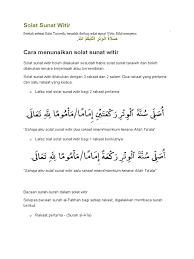 Solat Sunat Witir
Cara menunaikan solat sunat witir
Solat sunat witir boleh dilakukan sesudah habis solat sunat tarawih dan boleh
dilakukan secara berjemaah atau bersendirian.
Solat sunat witir dilakukan dengan 3 rakaat dan 2 salam. Dua rakaat yang pertama
dan satu rakaat yang kedua.
Lafaz niat solat sunat witir bagi 2 rakaat pertama
أُصَلِّي سُنَّةَ الْوِتْرِ رَكْعَتَيْنِ إِمَامًا/مَأْمُومًا لِلَّهِ تَعَالَى
"Sahaja aku solat sunat witir dua rakaat imam/makmum kerana Allah Ta'ala"
Lafaz niat solat sunat witir bagi 1 rakaat berikutnya
أُصَلِّي سُنَّةَ الْوِتْرِ رَكْعَةً إِمَامًا/مَأْمُومًا لِلَّهِ تَعَالَى
"Sahaja aku solat sunat witir satu rakaat imam/makmum kerana Allah Ta'ala"
Bacaan surah-surah dalam solat witir
Selepas bacaan surah al-Fatihah bagi setiap rakaat, digalakkan membaca surah
berikut:
Rakaat pertama - (Surah al-A'la)